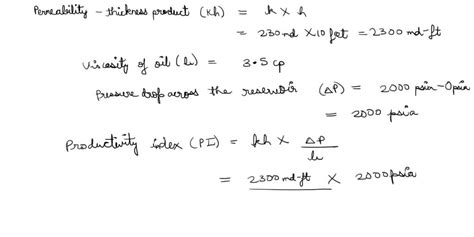 Permeability - thickness product (Kh) = k × h
= 230 md × 10 feet = 2300 md-ft
Viscosity of oil (μ) = 3.5 cp
Pressure drop across the reservoir (ΔP) = 2000 psia - 0 psia
= 2000 psia
Productivity index (PI) = kh × ΔP
μ
= 2300 md-ft × 2000 psia